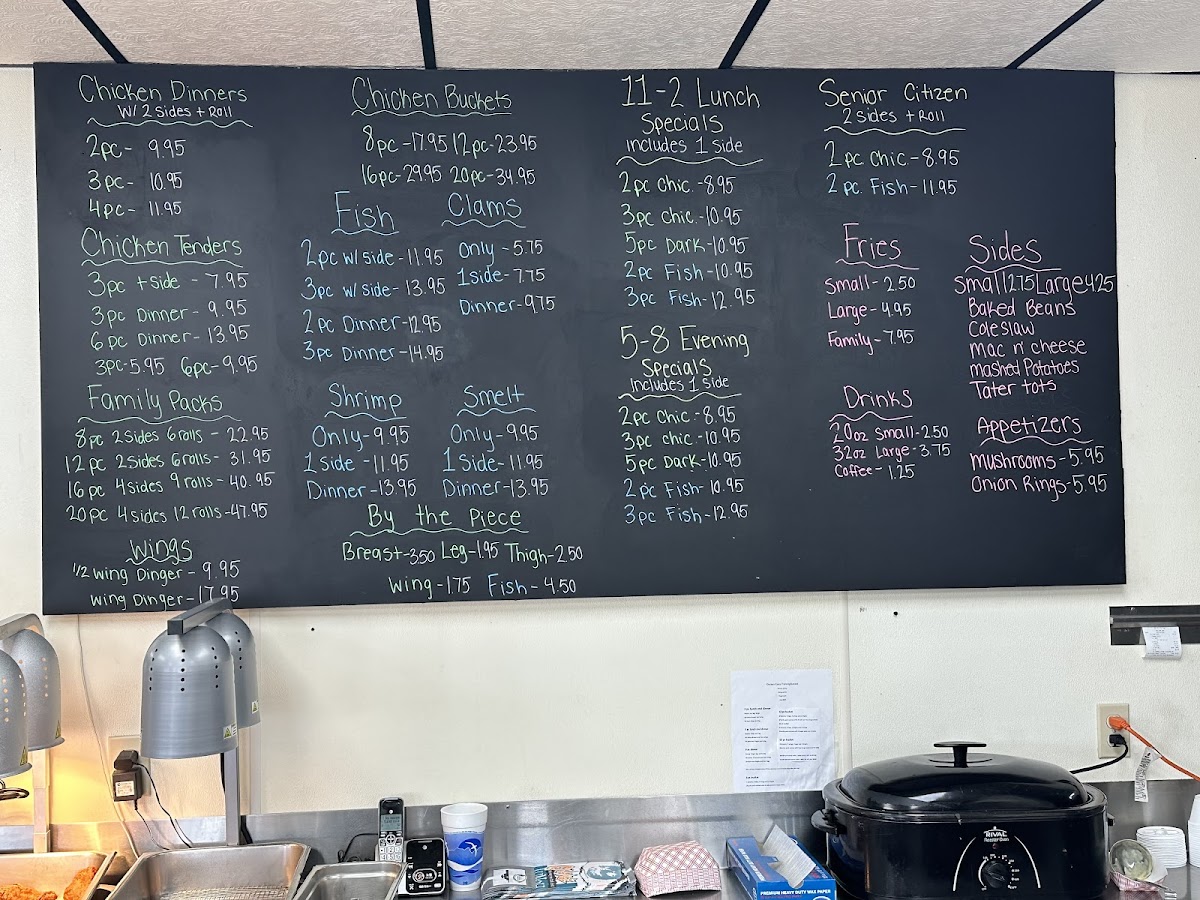 Chicken Dinners
W/ 2 Sides + Roll
2pc- 9.95
3pc- 10.95
4pc- 11.95
Chicken Tenders
3pc + side - 7.95
3pc Dinner - 9.95
6pc Dinner - 13.95
3pc-5.95 6pc-9.95
Family Packs
8pc 2sides 6rolls - 22.95
12pc 2sides 6rolls - 31.95
16pc 4sides 9rolls - 40.95
20pc 4sides 12rolls-47.95
Wings
1/2 wing Dinger - 9.95
wing Dinger - 17.95
Chicken Buckets
8pc-17.95 12pc-23.95
16pc-29.95 20pc-34.95
Fish
2pc w/side-11.95
3pc w/side-13.95
2pc Dinner-12.95
3pc Dinner-14.95
Clams
Only-5.75
1side-7.75
Dinner-9.75
Shrimp
Only-9.95
1side-11.95
Dinner-13.95
Smelt
Only-9.95
1Side-11.95
Dinner-13.95
By the Piece
Breast-3.50 Leg-1.95 Thigh-2.50
wing-1.75 Fish-4.50
11-2 Lunch
Specials
includes 1 side
2pc chic.-8.95
3pc chic.-10.95
5pc Dark-10.95
2pc Fish-10.95
3pc Fish-12.95
5-8 Evening
Specials
includes 1 side
2pc chic.-8.95
3pc chic.-10.95
5pc Dark-10.95
2pc Fish-10.95
3pc Fish-12.95
Senior Citizen
2 sides + roll
2pc chic-8.95
2pc. Fish-11.95
Fries
Small-2.50
Large-4.95
Family-7.95
Drinks
20oz Small-2.50
32oz Large-3.75
Coffee-1.25
Sides
Small 2.75 Large 4.25
Baked Beans
Coleslaw
mac n' cheese
mashed Potatoes
Tater tots
Appetizers
mushrooms-5.95
Onion Rings-5.95
RIVAL
Roaster Oven
PREMIUM HEAVY DUTY WAX PAPER